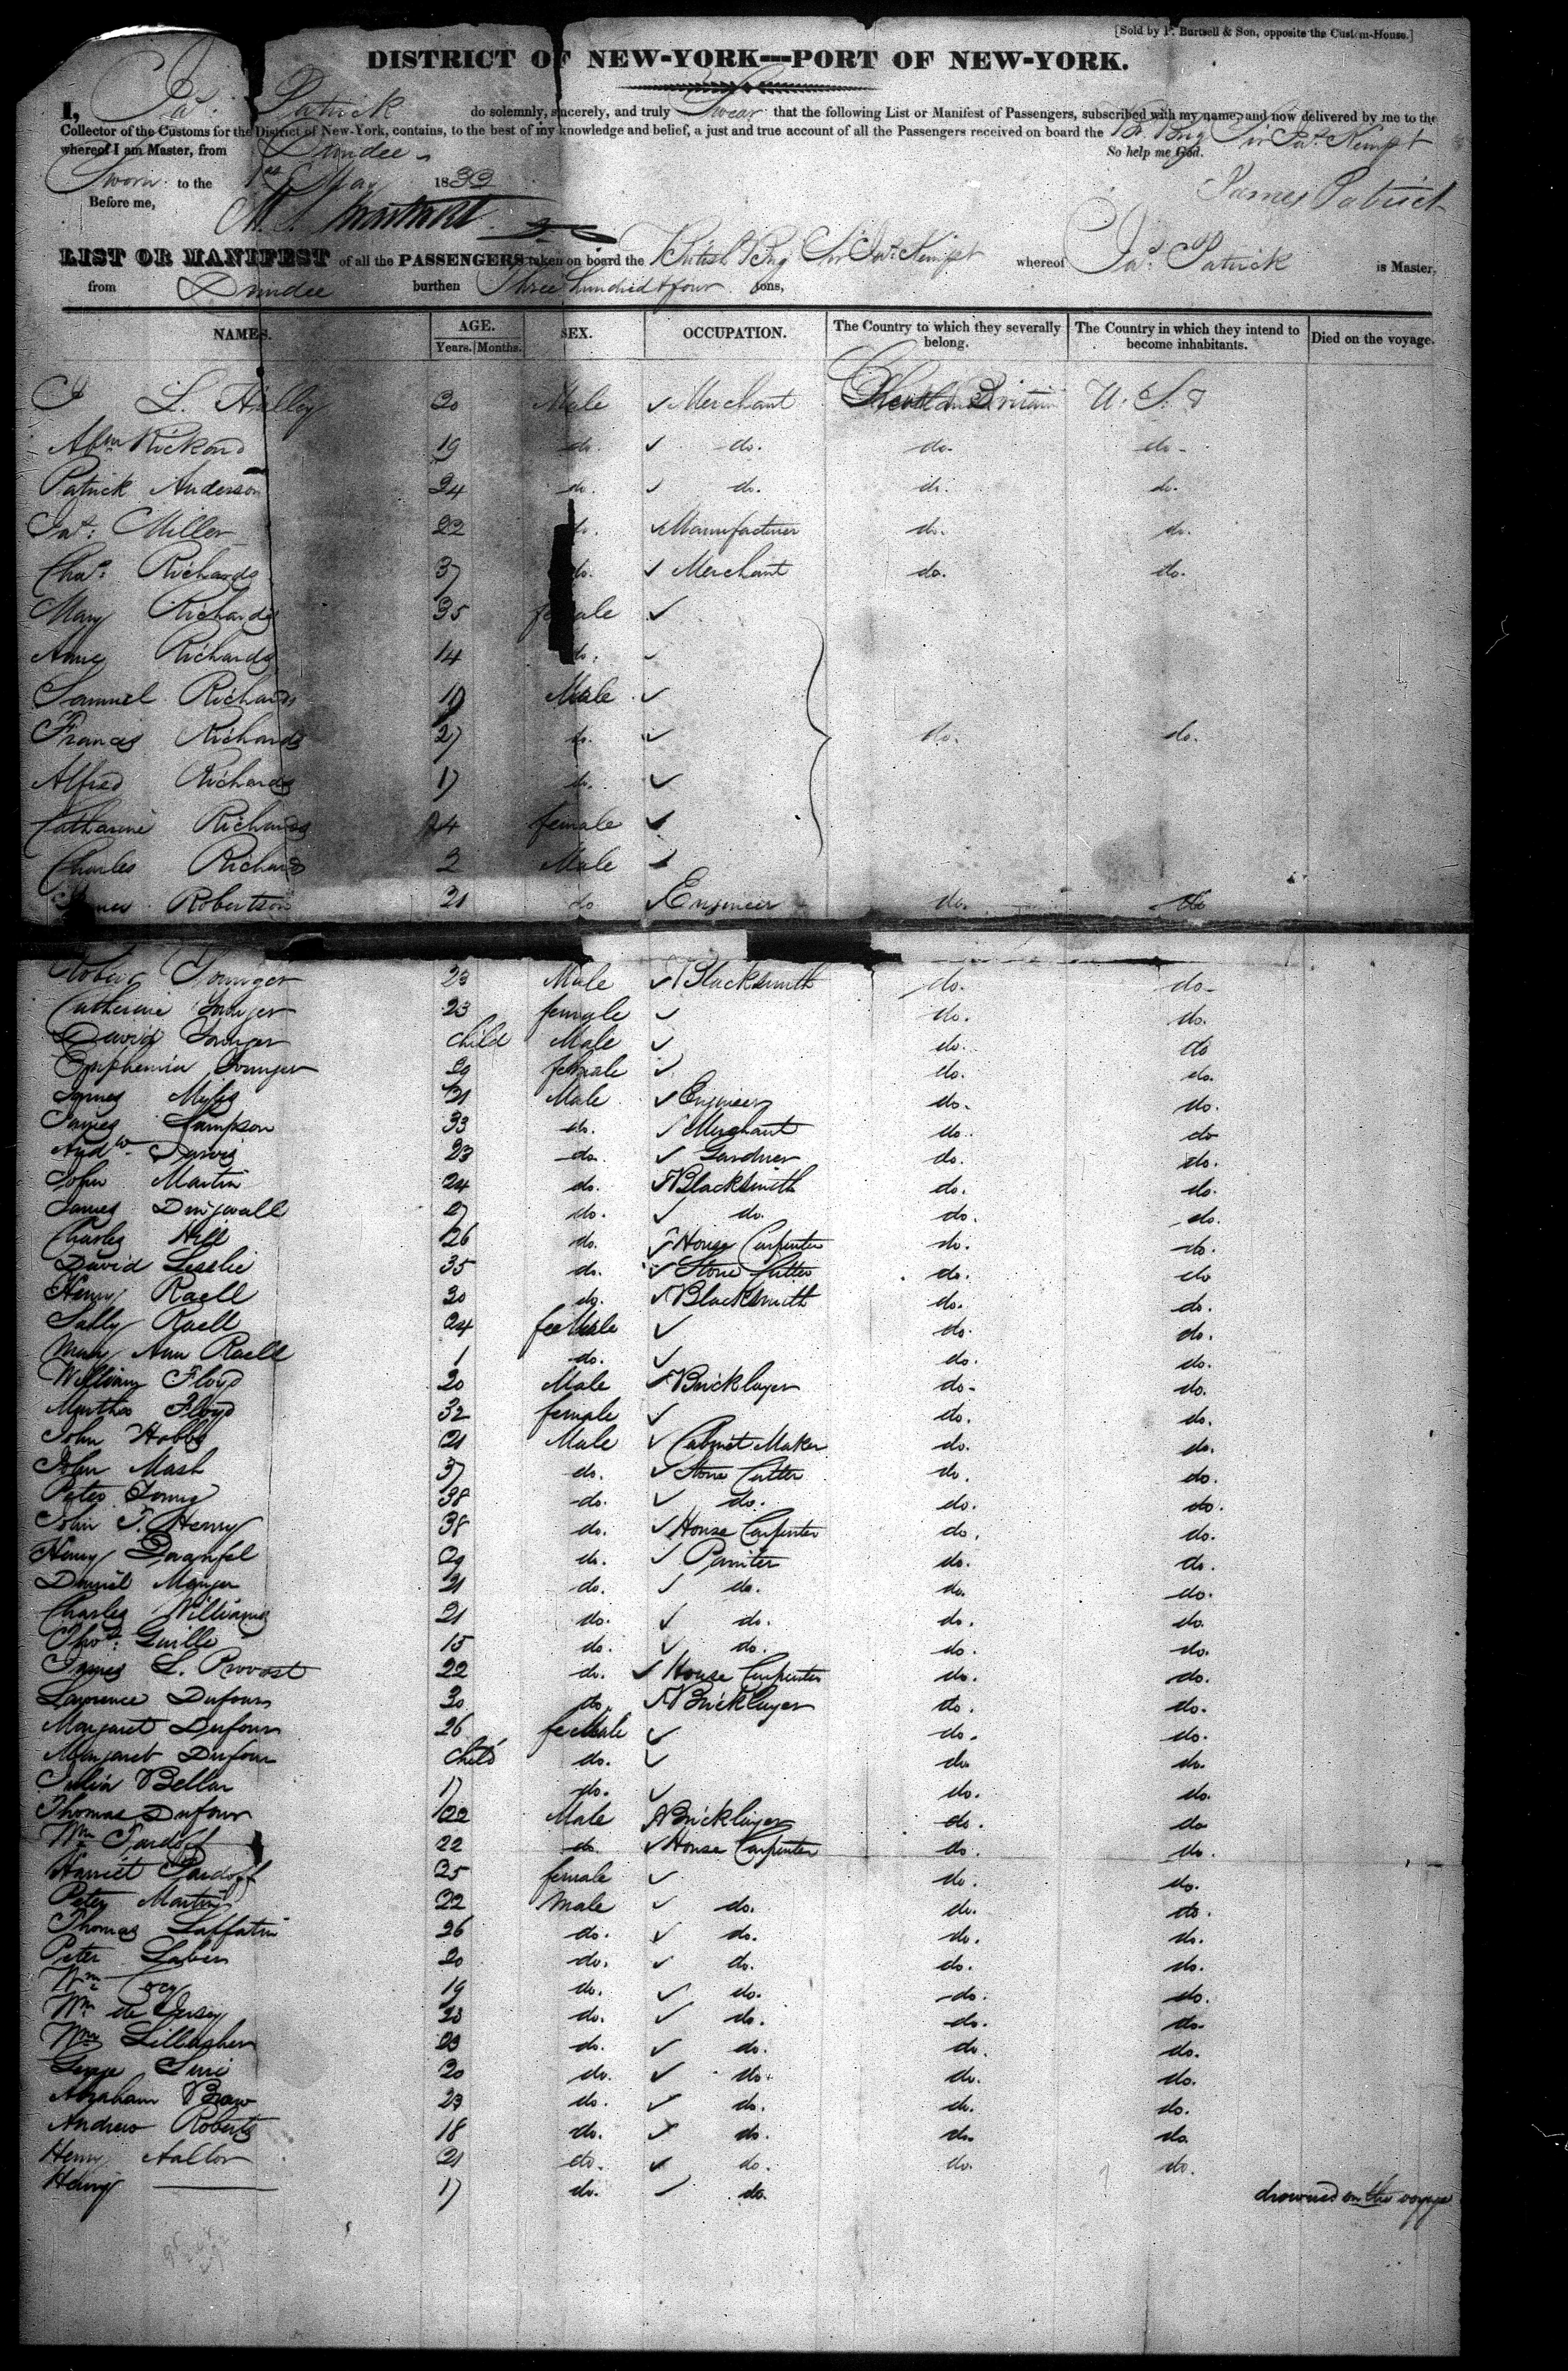 [Sold by P. Burtsell & Son, opposite the Custom-House.]
DISTRICT OF NEW-YORK---PORT OF NEW-YORK.
I, Jas. Patrick do solemnly, sincerely, and truly Swear that the following List or Manifest of Passengers, subscribed with my name, and now delivered by me to the
Collector of the Customs for the District of New-York, contains, to the best of my knowledge and belief, a just and true account of all the Passengers received on board the Br. Brig Sir Jas. Kempt
whereof I am Master, from Dundee So help me God.
Sworn to the 1st May 1832
James Patrick
Before me,
LIST OR MANIFEST of all the PASSENGERS taken on board the British Brig Sir Jas. Kempt whereof Jas. Patrick is Master,
from Dundee burthen Three hundred & four tons,
NAMES. AGE. SEX. OCCUPATION. The Country to which they severally belong. The Country in which they intend to become inhabitants. Died on the voyage.
Years. Months.
L. Halley 20 Male Merchant Britain U. S.
Rickard 19 do. do. do. do.
Patrick Anderson 24 do. do. do. do.
Jas. Miller 22 do. Manufacturer do. do.
Chas. Richards 37 do. Merchant do. do.
Mary Richards 35 female
Anne Richards 14 do.
Samuel Richards 19 Male
Francis Richards 27 do. do. do.
Alfred Richards 17 do.
Catharine Richards 24 female
Charles Richards 2 Male
James Robertson 21 do Engineer do. do
Robert Younger 23 Male Blacksmith do. do.
Catherine Younger 23 female do. do.
David Younger child Male do. do
Euphemia Younger 29 female do. do.
James 21 Male Engineer do. do.
James Sampson 33 do. Merchant do. do
Andw. Jarvis 23 do. Gardner do. do.
John Martin 24 do. Blacksmith do. do.
James Dingwall 27 do. do. do. do.
Charles Hill 26 do. House Carpenter do. do.
David Lesslie 35 do. Stone Cutter do. do
Henry Raell 30 do. Blacksmith do. do.
Sally Raell 24 female do. do.
Mary Ann Raell 1 do. do. do.
William Floyd 20 Male Bricklayer do. do.
Martha Floyd 32 female do. do.
John Hobbs 21 Male Cabinet Maker do. do.
John Mash 37 do. Stone Cutter do. do.
Peter Young 38 do. do. do. do.
John T. Henry 38 do. House Carpenter do. do.
Henry 29 do. Painter do. do.
Daniel Manger 21 do. do. do. do.
Charles Williams 21 do. do. do. do.
Thos. Guille 15 do. do. do. do.
James L. Provost 22 do. House Carpenter do. do.
Lawrence Dufour 30 do. Bricklayer do. do.
Margaret Dufour 26 female do. do.
Margaret Dufour child do. do do.
Julia Bellar 17 do. do. do.
Thomas Dufour 22 Male Bricklayer do. do
Wm Tardoff 22 do. House Carpenter do. do.
Harriet Tardoff 25 female do. do.
Peter Martin 22 male do. do. do.
Thomas Laffatin 26 do. do. do. do.
Peter 20 do. do. do. do.
Wm 19 do. do. do. do.
Wm de Jersey 23 do. do. do. do.
Wm 23 do. do. do. do.
George 20 do. do. do. do.
Abraham 23 do. do. do. do.
Andrew Roberts 18 do. do. do. do
Henry 21 do. do. do. do.
Henry 17 do. do. drowned on the voyage